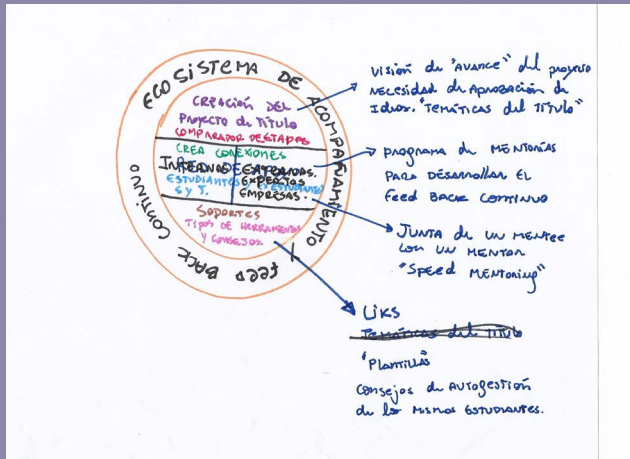 ECOSISTEMA DE ACOMPAÑAMIENTO Y FEED BACK CONTINUO
CREACIÓN DEL
PROYECTO DE TÍTULO
COMPARADOR DE ETAPAS
CREA CONEXIONES
INTERNAS
ESTUDIANTES
S y J.
EXTERNAS.
EXPERTOS
EMPRESAS.
SOPORTES
TIPOS DE HERRAMIENTAS
Y CONSEJOS.
Visión de "AVANCE" del proyecto
NECESIDAD de APROBACIÓN de
IDEAS. "TEMÁTICAS del TÍTULO"
PROGRAMA de MENTORIAS
PARA DESARROLLAR EL
Feed BACK CONTINUO
JUNTA de UN MENTEE
CON UN MENTOR
"SPEED MENTORING"
LIKS
TEMÁTICAS del TÍTULO
"PLANTILLAS"
CONSEJOS de AUTOGESTIÓN
de los MISMOS ESTUDIANTES.